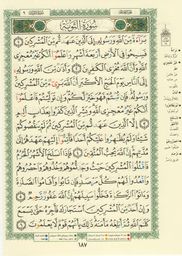 سُورَةُ التَّوْبَةِ
بَرَاءَةٌ مِّنَ اللَّهِ وَرَسُولِهِ إِلَى الَّذِينَ عَاهَدتُّم مِّنَ الْمُشْرِكِينَ ١
فَسِيحُوا فِي الْأَرْضِ أَرْبَعَةَ أَشْهُرٍ وَاعْلَمُوا أَنَّكُمْ غَيْرُ مُعْجِزِي
اللَّهِ وَأَنَّ اللَّهَ مُخْزِي الْكَافِرِينَ ٢ وَأَذَانٌ مِّنَ اللَّهِ وَرَسُولِهِ
إِلَى النَّاسِ يَوْمَ الْحَجِّ الْأَكْبَرِ أَنَّ اللَّهَ بَرِيءٌ مِّنَ الْمُشْرِكِينَ
وَرَسُولُهُ فَإِن تُبْتُمْ فَهُوَ خَيْرٌ لَّكُمْ وَإِن تَوَلَّيْتُمْ فَاعْلَمُوا
أَنَّكُمْ غَيْرُ مُعْجِزِي اللَّهِ وَبَشِّرِ الَّذِينَ كَفَرُوا بِعَذَابٍ أَلِيمٍ ٣
إِلَّا الَّذِينَ عَاهَدتُّم مِّنَ الْمُشْرِكِينَ ثُمَّ لَمْ يَنقُصُوكُمْ شَيْئًا
وَلَمْ يُظَاهِرُوا عَلَيْكُمْ أَحَدًا فَأَتِمُّوا إِلَيْهِمْ عَهْدَهُمْ إِلَى مُدَّتِهِمْ
إِنَّ اللَّهَ يُحِبُّ الْمُتَّقِينَ ٤ فَإِذَا انسَلَخَ الْأَشْهُرُ الْحُرُمُ
فَاقْتُلُوا الْمُشْرِكِينَ حَيْثُ وَجَدتُّمُوهُمْ وَخُذُوهُمْ وَاحْصُرُوهُمْ
وَاقْعُدُوا لَهُمْ كُلَّ مَرْصَدٍ فَإِن تَابُوا وَأَقَامُوا الصَّلَاةَ
وَآتَوُا الزَّكَاةَ فَخَلُّوا سَبِيلَهُمْ إِنَّ اللَّهَ غَفُورٌ رَّحِيمٌ ٥
وَإِنْ أَحَدٌ مِّنَ الْمُشْرِكِينَ اسْتَجَارَكَ فَأَجِرْهُ حَتَّى يَسْمَعَ
كَلَامَ اللَّهِ ثُمَّ أَبْلِغْهُ مَأْمَنَهُ ذَلِكَ بِأَنَّهُمْ قَوْمٌ لَّا يَعْلَمُونَ ٦
١٨٧